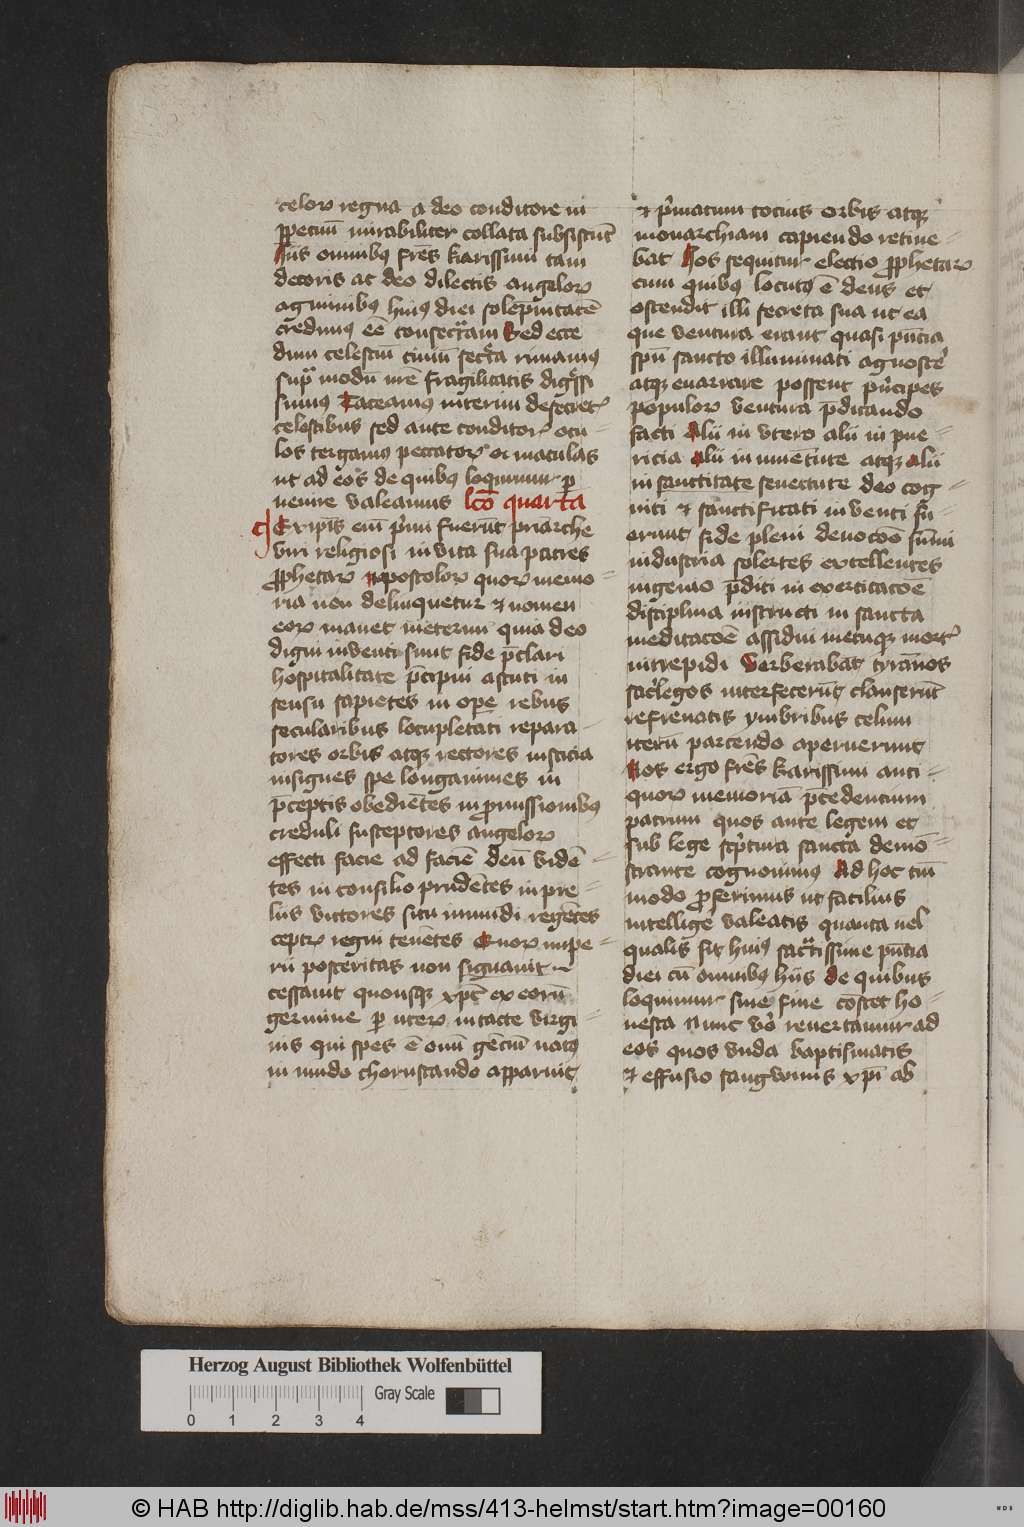 celoꝝ regna a deo conditore in
ꝑpetuū mirabiliter collata subsistūt
Hiis omnibꝰ frēs karissimi tam
decoris ac deo dilectis angeloꝝ
agminibꝰ huiꝰ diei solēpnitatē
credimꝰ eē consecratam Sed ecce
dum celestiū ciuiū secreta rimamꝰ
supra modū nre fragilitatis digressi
sumus Taceamꝰ interim de secretꝭ
celestibus sed ante conditoꝝ ocu-
los tergamꝰ peccatoꝝ maculas
ut ad eos de quibꝰ loquimur ꝑ
uenire valeamus lcō quarta
Ex ipīs eni primi fuerūt priarche
viri religiosi in vita sua patres
ꝓphetaꝝ Apostoloꝝ quoꝝ memo-
ria non delinquetur et nomen
eoꝝ manet in eternū quia deo
digni inuenti sunt fide p̄clari
hospitalitate p̄cipui astuti in
sensu sapiētes in ope rebus
secularibus locupletati repara-
tores orbis atqꝫ rectores iusticia
insignes spe longanimes in
p̄ceptis obediētes in promissionibꝰ
creduli susceptores angeloꝝ
effecti facie ad faciē deū vidē-
tes in consilio prudētes in pre-
liis victores situ mundi regētes
ceptꝝ regni tenētes Quoꝝ impe-
rii posteritas non signauit
cessauit quousqꝫ xp̄c ex eorū
germine ꝑ uteꝝ intacte virgi-
nis qui spes ē om̄ gēciū natꝰ
in mūdo choruscando apparuit
et primatum tocius orbis atqꝫ
monarchiam capiendo retine-
bat Hos sequitur electio ꝓphetaꝝ
cum quibus locutꝰ ē deus et
ostendit illi secreta sua ut ea
que ventura erant quasi p̄ncia
sp̄u sancto illuminati agnoscē
atqꝫ enarrare possent principes
populoꝝ ventura p̄dicando
facti Alii in vtero alii in pue-
ricia Alii in iuuētute atqꝫ alii
in sanctitate senectute deo cog-
niti et sanctificati inventi fu-
erunt fide pleni deuocōe sūmi
industria solertes excellentes
ingenio p̄diti in exercitacōē
disciplina instructi in sancta
meditacōē assidui metuqꝫ mortꝭ
intrepidi Verberabāt tyrānos
sacrilegos interfecerūt clauserūt
refrenatis ymbribus celum
iterū parcendo aperuerunt
Nos ergo frēs karissimi anti-
quoꝝ memoriā p̄cedentium
patrum quos ante legem et
sub lege scriptura sancta demō-
strante cognouimꝰ Ad hoc tm̄
modo ꝓferimus ut facilius
intellige valeatis quanta uel
qualis sit huiꝰ sacratissime p̄ncia
diei cū omnibꝰ hiis de quibus
loquimur sine fine cōstet ho-
nesta Nunc vo reuertamur ad
eos quos vnda baptismatis
et effusio sangwinis xp̄i ab
Herzog August Bibliothek Wolfenbüttel
Gray Scale
0 1 2 3 4
© HAB http://diglib.hab.de/mss/413-helmst/start.htm?image=00160